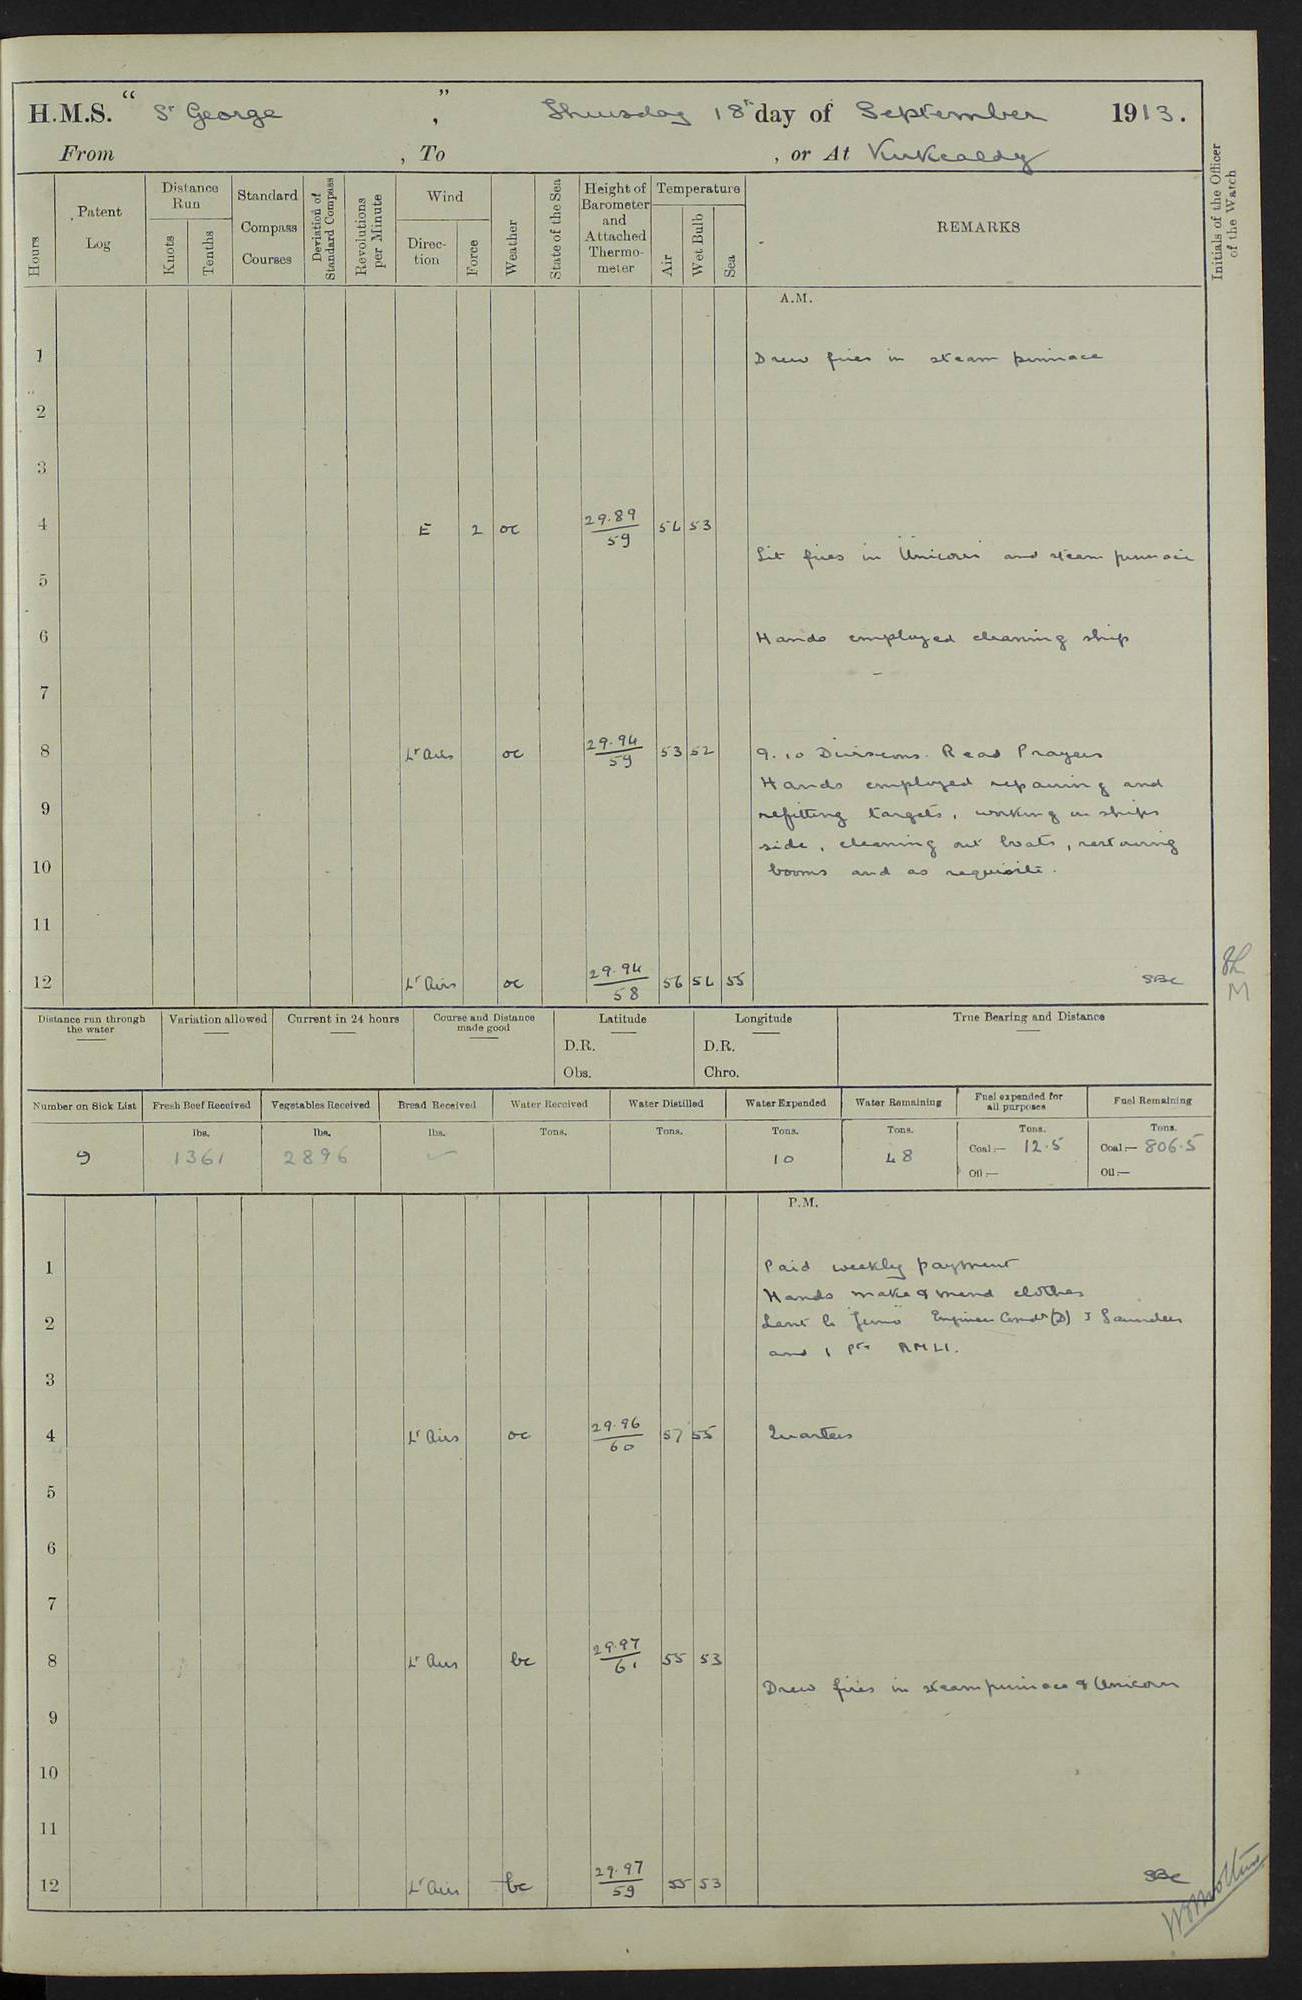 H.M.S. “ St George ”, Thursday 18th day of September 1913.
From , To , or At Kirkcaldy
Hours
Patent Log
Distance Run
Knots
Tenths
Standard Compass Courses
Deviation of Standard Compass
Revolutions per Minute
Wind
Direc-tion
Force
Weather
State of the Sea
Height of Barometer and Attached Thermo-meter
Temperature
Air
Wet Bulb
Sea
REMARKS
Initials of the Officer of the Watch
A.M.
1 Drew fires in steam pinnace
2
3
4 E 2 oc 29.89/59 54 53
Lit fires in "Unicorn" and steam pinnace
5
6 Hands employed cleaning ship
7
8 Lt Airs oc 29.94/59 53 52 9.10 Divisions. Read Prayers
Hands employed repairing and
9 refitting targets, working on ships
side, cleaning out boats, restowing
10 booms and as requisite.
11
12 Lt Airs oc 29.94/58 56 54 55 SBC
Distance run through the water
Variation allowed
Current in 24 hours
Course and Distance made good
Latitude
D.R.
Obs.
Longitude
D.R.
Chro.
True Bearing and Distance
Number on Sick List
9
Fresh Beef Received
lbs.
1361
Vegetables Received
lbs.
2896
Bread Received
lbs.
Water Received
Tons.
Water Distilled
Tons.
Water Expended
Tons.
10
Water Remaining
Tons.
48
Fuel expended for all purposes
Tons.
Coal:— 12.5
Oil:—
Fuel Remaining
Tons.
Coal:— 806.5
Oil:—
P.M.
1 Paid weekly payment
Hands make & mend clothes
2 Lent to "Juno" Engineer Comdr (D) J Saunders
and 1 Pte RMLI.
3
4 Lt Airs oc 29.96/60 57 55 Quarters
5
6
7
8 Lt Airs bc 29.97/61 55 53
Drew fires in steam pinnace & Unicorn
9
10
11
12 Lt Airs bc 29.97/59 55 53 SBC